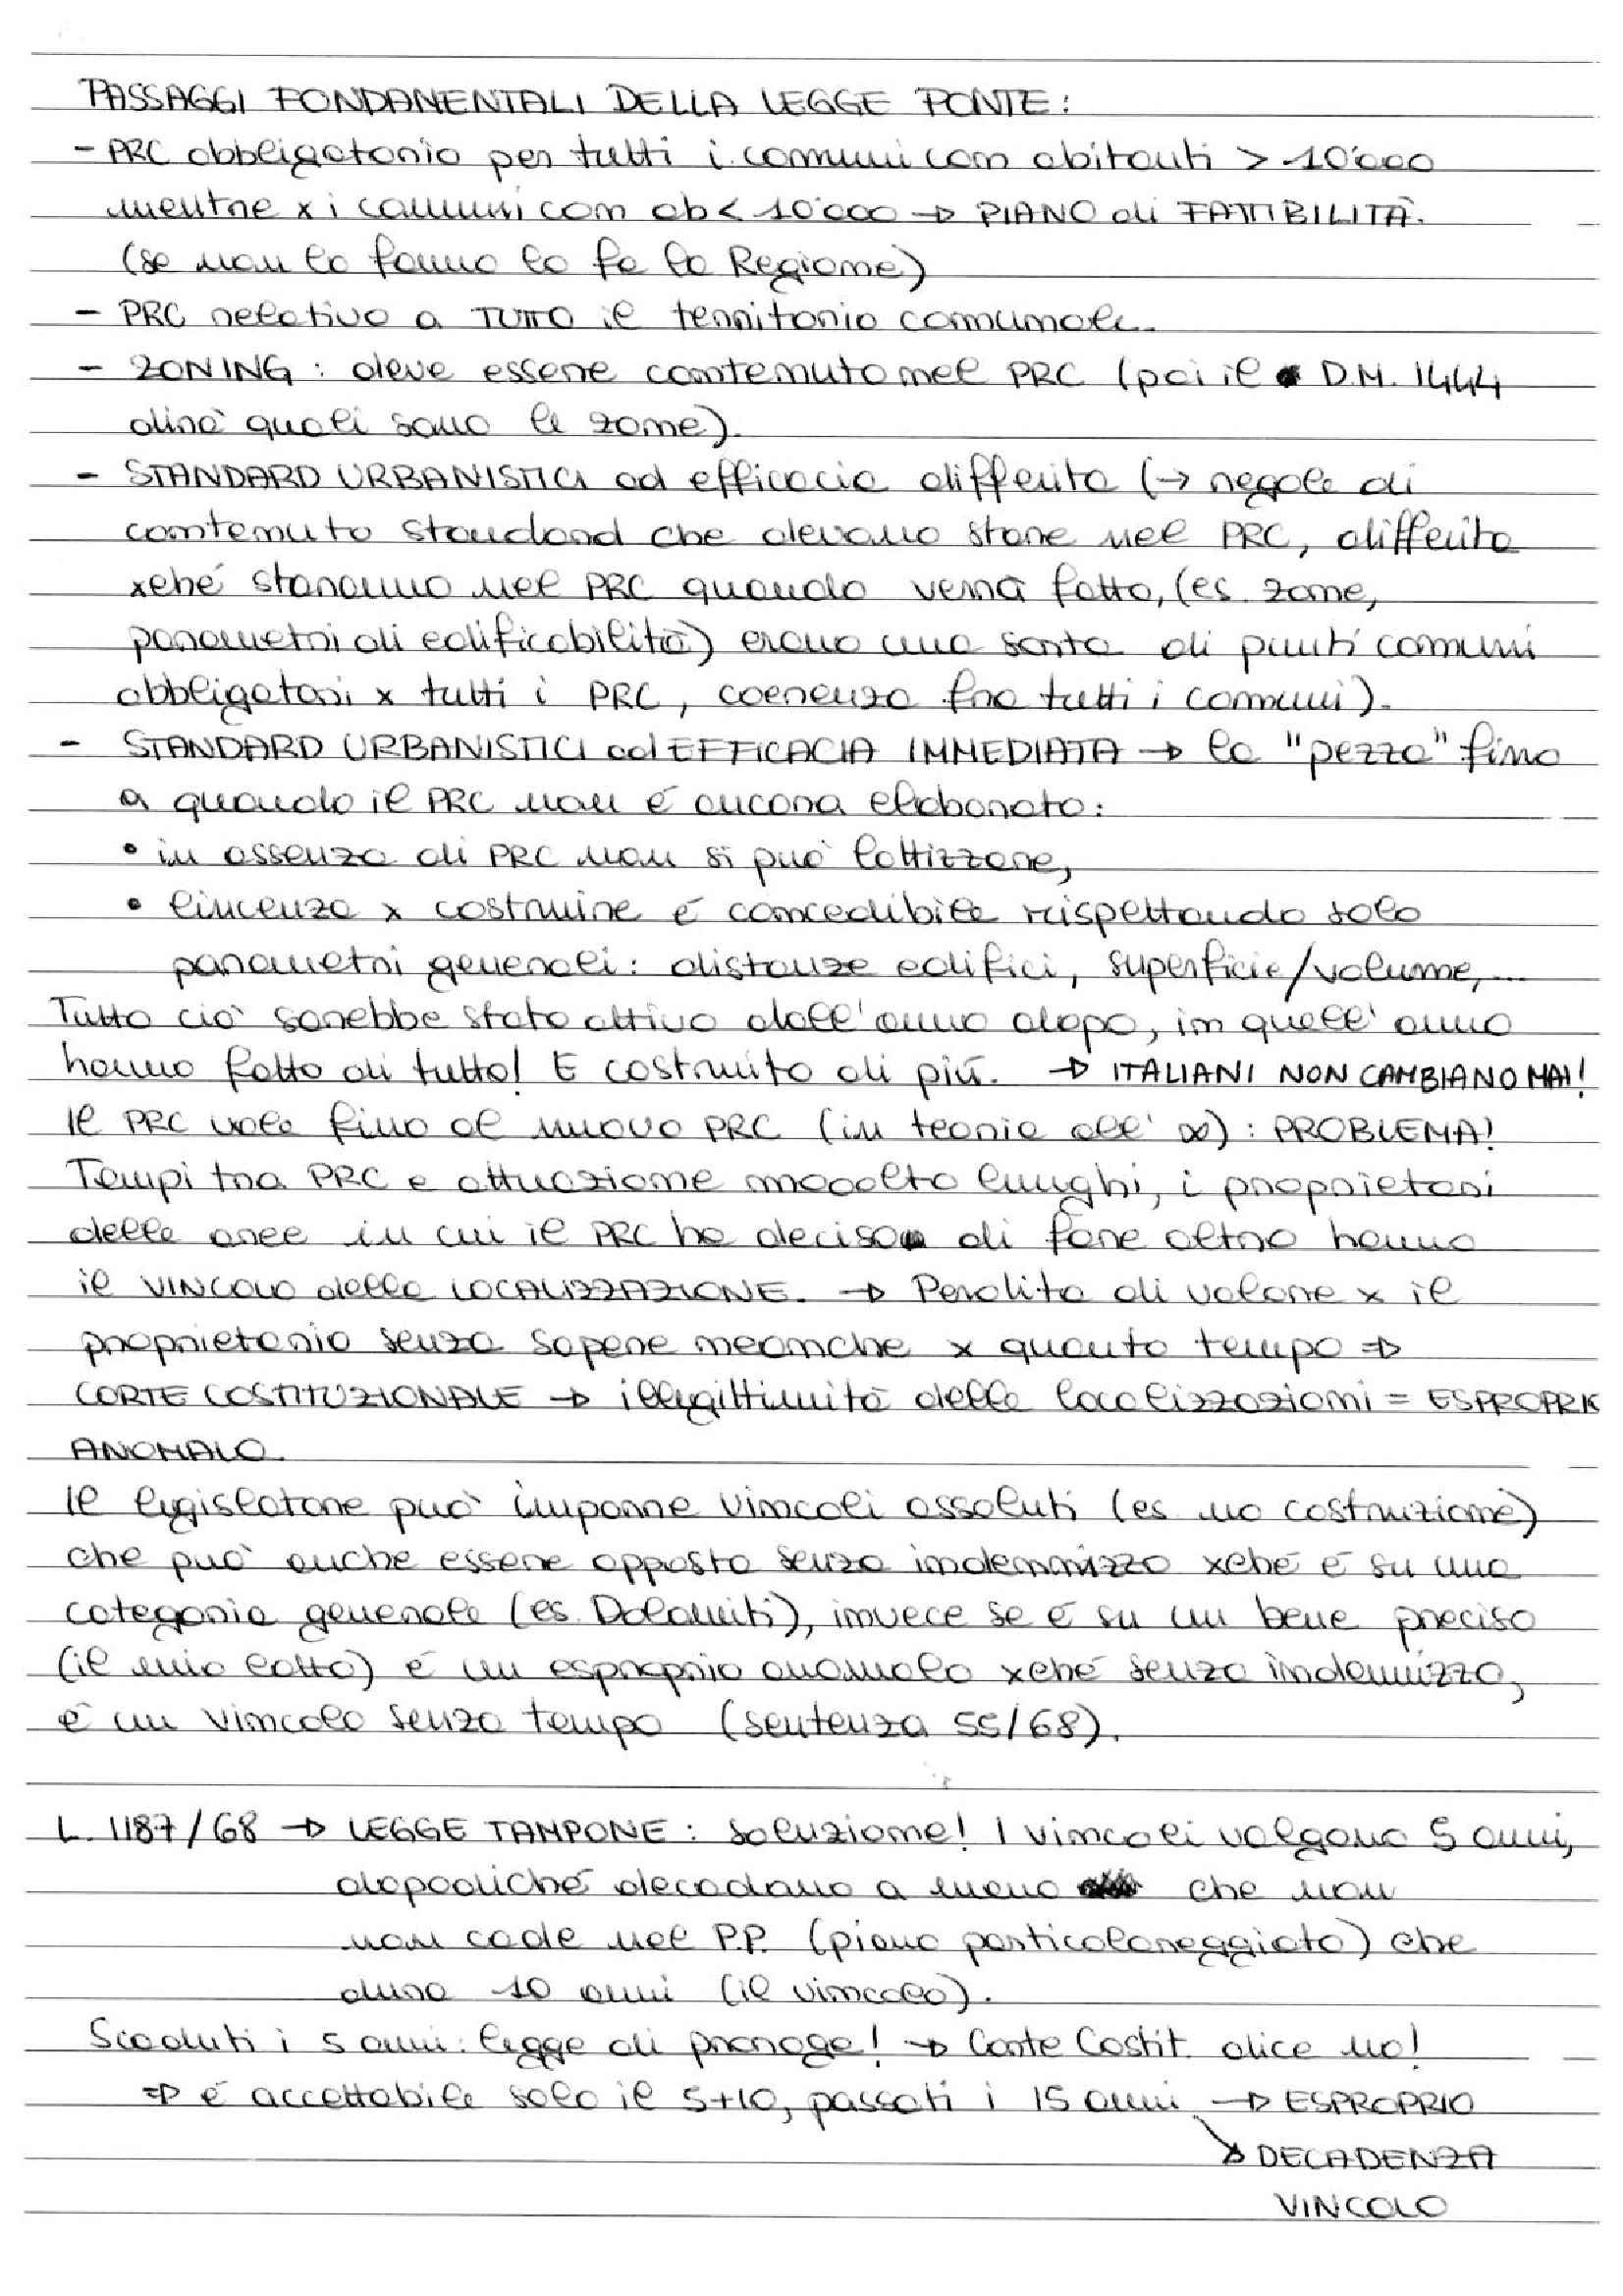 PASSAGGI FONDAMENTALI DELLA LEGGE PONTE:
- PRC obbligatorio per tutti i comuni con abitanti > 10'000
mentre x i comuni con ab < 10'000 → PIANO di FATTIBILITÀ.
(se non lo fanno lo fa la Regione)
- PRC relativo a TUTTO il territorio comunale.
- ZONING: deve essere contenuto nel PRC (poi il D.M. 1444
dirà quali sono le zone).
- STANDARD URBANISTICI ad efficacia differita (→ regole di
contenuto standard che devono stare nel PRC, differita
xché staranno nel PRC quando verrà fatto, (es. zone,
parametri di edificabilità) erano una sorta di punti comuni
obbligatori x tutti i PRC, coerenza fra tutti i comuni).
- STANDARD URBANISTICI ad EFFICACIA IMMEDIATA → la "pezza" fino
a quando il PRC non è ancora elaborato:
• in assenza di PRC non si può lottizzare,
• lincenza x costruire è concedibile rispettando solo
parametri generali: distanze edifici, superficie/volume,...
Tutto ciò sarebbe stato attivo dall'anno dopo, in quell'anno
hanno fatto di tutto! E costruito di più. → ITALIANI NON CAMBIANO MAI!
Il PRC vale fino al nuovo PRC (in teoria all'∞): PROBLEMA!
Tempi tra PRC e attuazione mooolto lunghi, i proprietari
delle aree in cui il PRC ha deciso di fare altro hanno
il VINCOLO della LOCALIZZAZIONE. → Perdita di valore x il
proprietario senza sapere neanche x quanto tempo ⇒
CORTE COSTITUZIONALE → illegittimità delle localizzazioni = ESPROPRIO
ANOMALO.
Il legislatore può imporre vincoli assoluti (es. no costruzione)
che può anche essere apposto senza indennizzo xché è su una
categoria generale (es. Dolomiti), invece se è su un bene preciso
(il mio lotto) è un esproprio anomalo xché senza indennizzo,
è un vincolo senza tempo (sentenza 55/68).
L. 1187/68 → LEGGE TAMPONE: soluzione! I vincoli valgono 5 anni,
dopodiché decadano a meno che non
non cade nel P.P. (piano particolareggiato) che
dura 10 anni (il vincolo).
Scaduti i 5 anni: legge di proroga! → Corte Costit. dice no!
⇒ è accettabile solo il 5+10, passati i 15 anni → ESPROPRIO
↘ DECADENZA
VINCOLO